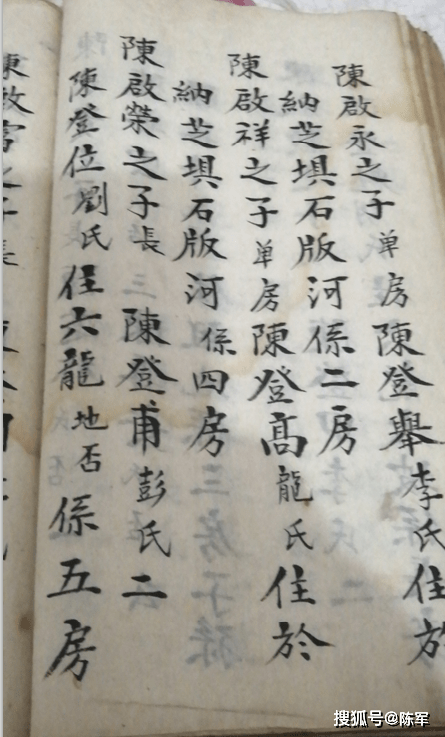 陳啟永之子单房陳登舉李氏住於
納芝埧石版河係二房
陳啟祥之子单房陳登髙龍氏住於
納芝埧石版河係四房
陳啟榮之子長陳登甫彭氏二
陳登位劉氏住六龍地否係五房
搜狐号@陈军